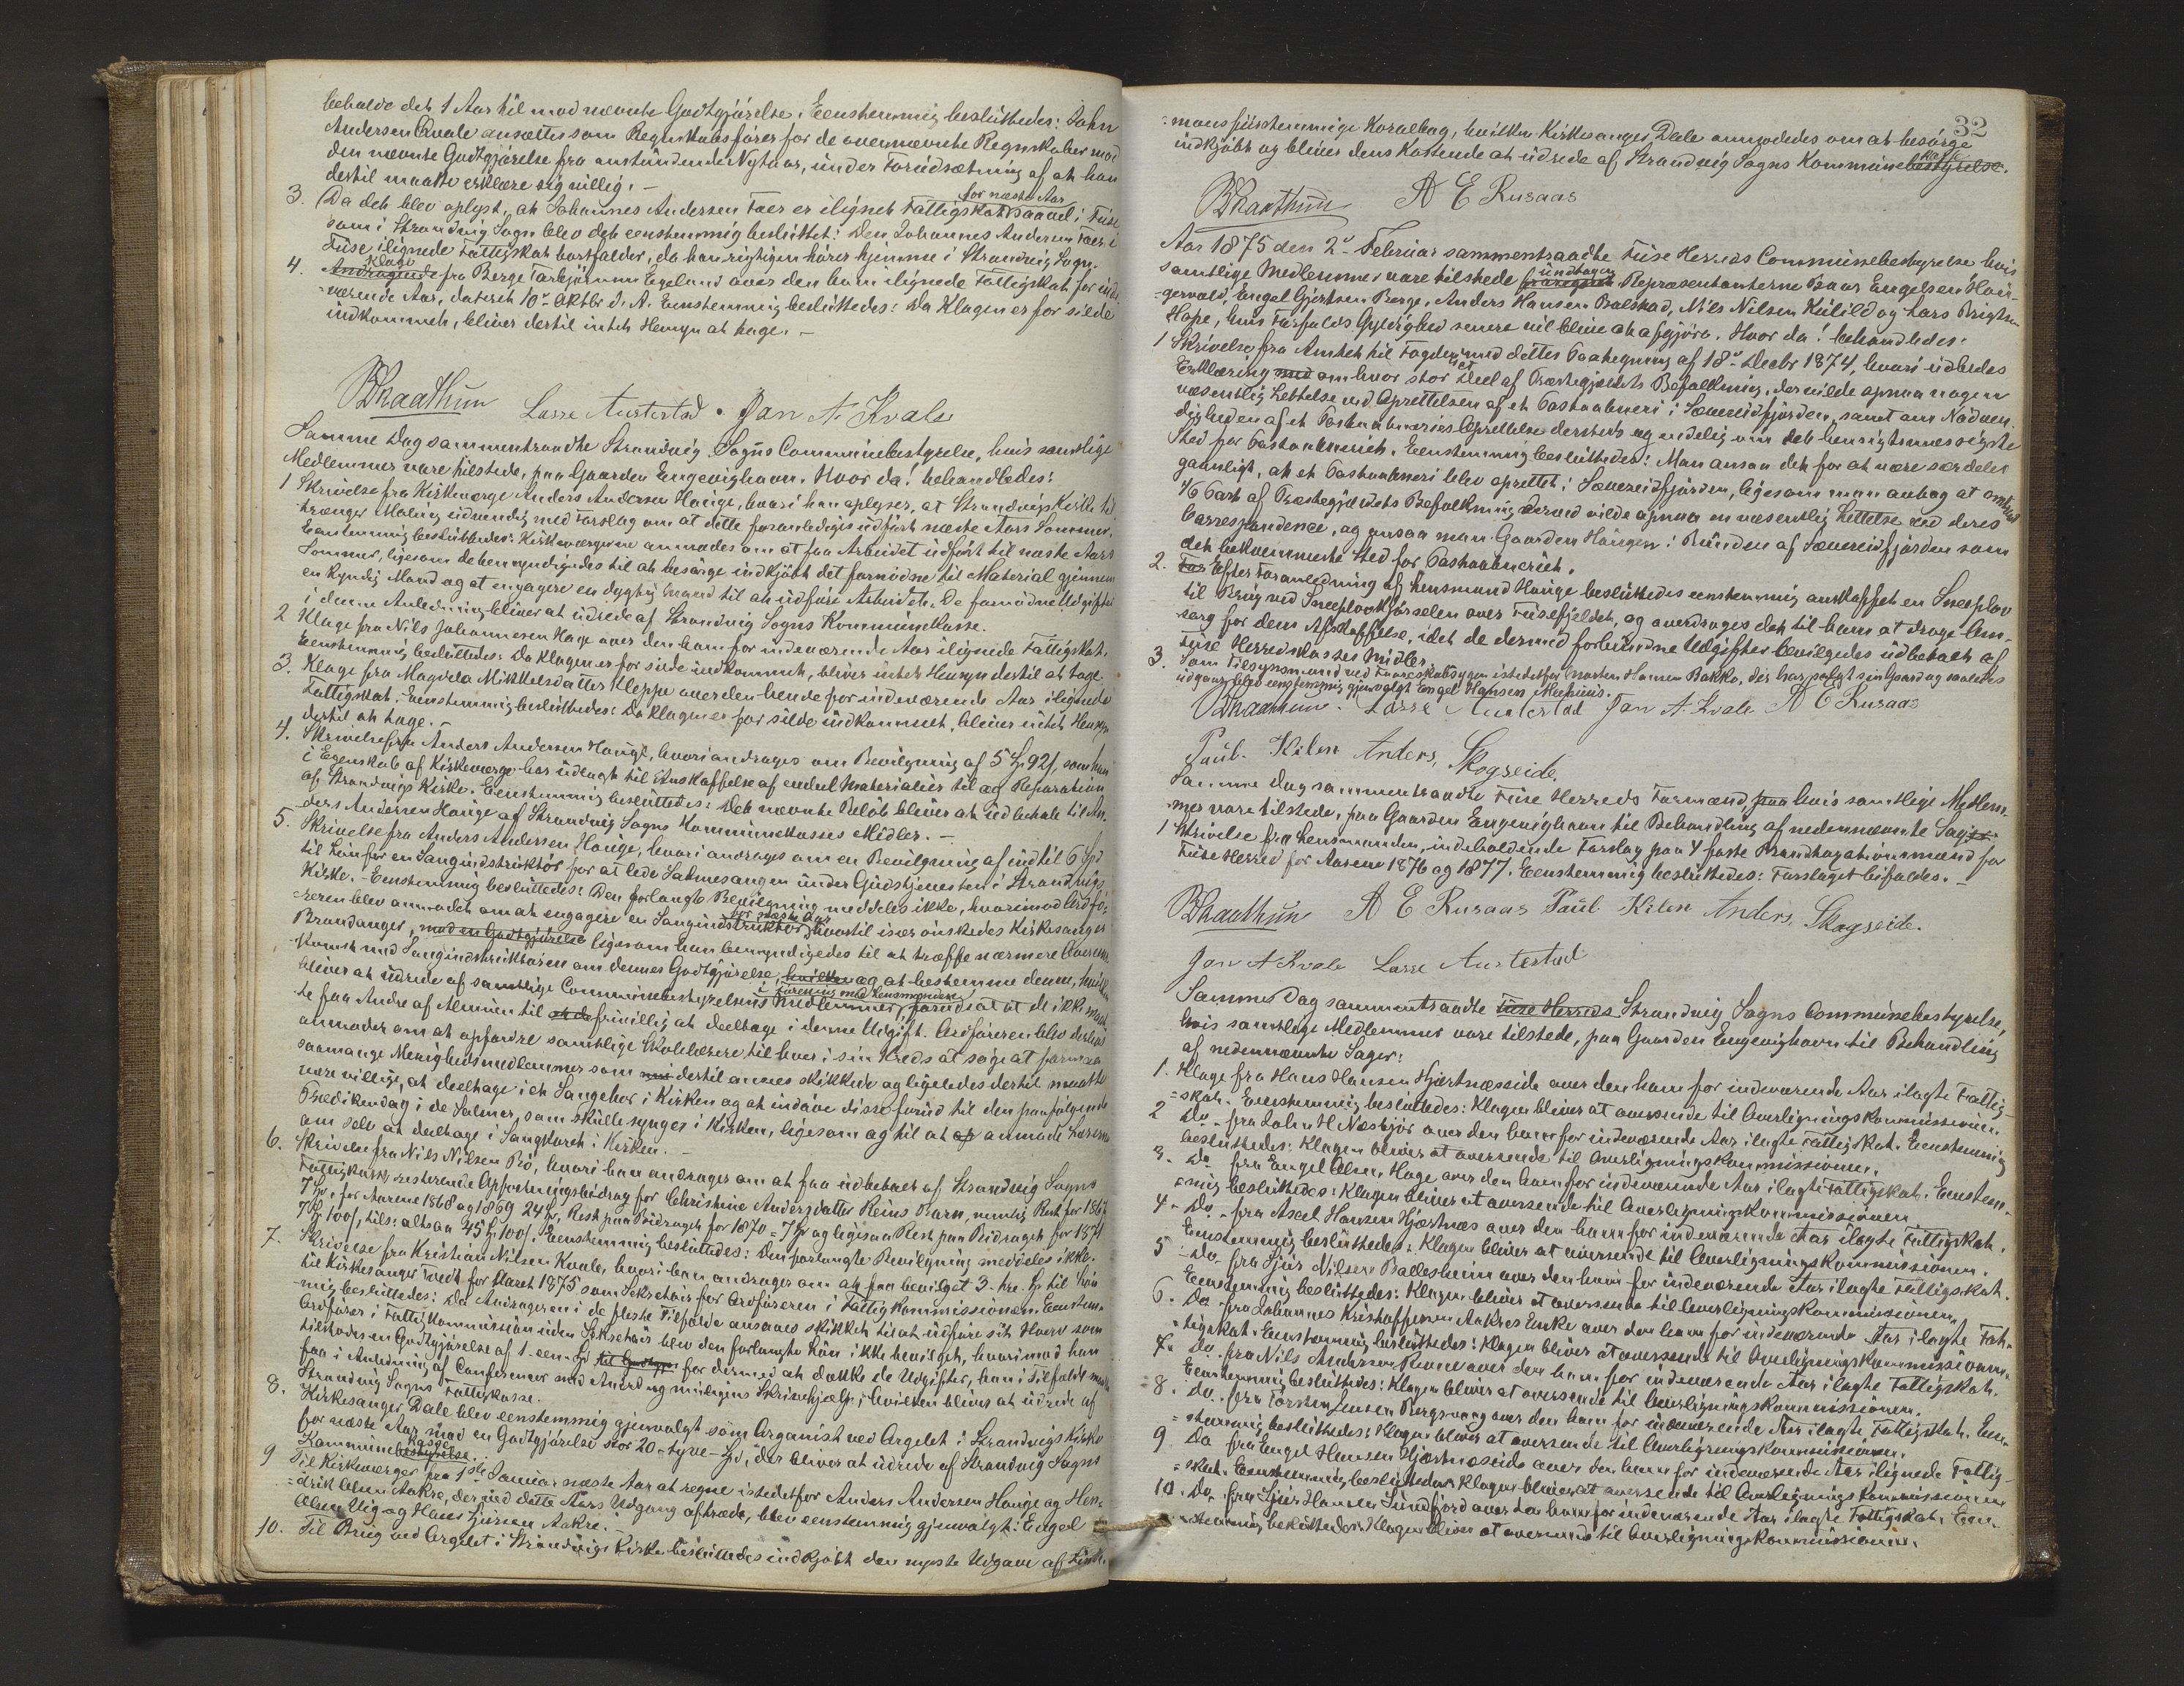 beholde det 1 Aar til mod nævnte Godtgjørelse. Eenstemmig besluttedes: John
Andersen Qvale ansættes som Regnskabsfører for de ovennævnte Regnskaber mod
den nævnte Godtgjørelse fra anstundende Nytaar, under Forudsætning af at han
dertil maatte erklære sig villig. –
for næste Aar
3. Da det blev oplyst, at Johannes Andersen Foer er ilignet Fattigskat saavel i Fuse
som i Strandvig Sogn blev det eenstemmig besluttet: Den Johannes Andersen Foer i
Fuse ilignede Fattigskat bortfalder, da han rigtigen hører hjemme i Strandvig Sogn.
Klage
4. Andragende fra Berge Torbjørnsen Egeland over den ham ilignede Fattigskat for inde-
værende Aar, dateret 10de Oktbr d. A. Eenstemmig besluttedes: Da Klagen er for silde
indkommen, bliver dertil intet Hensyn at tage. –
BRaathun Lasse Austestad. Jan A. Kvale
Samme Dag sammentraadte Strandvig Sogns Communebestyrelse, hvis samtlige
Medlemmer vare tilstede, paa Gaarden Engevighavn. Hvor da! behandledes:
1 Skrivelse fra Kirkeværge Anders Andersen Houge, hvori han oplyser, at Strandvigs Kirke til-
trænger Maling udvendig med Forslag om at dette foranlediges udført næste Aars Sommer.
Eenstemmig besluttedes: Kirkeværgerne anmodes om at faa Arbeidet udført til næste Aars
Sommer, ligesom de bemyndigedes til at besørge indkjøbt det fornødne til Material gjennem
en kyndig Mand og at engagere en dygtig Mand til at udføre Arbeidet. De fornødne Udgifter
i denne Anledning bliver at udrede af Strandvig Sogns Kommunekasse.
2 Klage fra Nils Johannesen Hage over den ham for indeværende Aar ilignede Fattigskat.
Eenstemmig besluttedes: Da Klagen er for silde indkommet, bliver intet Hensyn dertil at tage.
3. Klage fra Magdela Mikkelsdatter Kleppe over den hende for indeværende Aar ilignede
Fattigskat. Eenstemmig besluttedes: Da Klagen er for silde indkommet, bliver intet Hensyn
dertil at tage. –
4. Skrivelse fra Anders Andersen Houge, hvori andrages om Bevilgning af 5 Sp 92 s, som han
i Egenskab af Kirkeværge har udlagt til Anskaffelse af endeel Materialier til og Reparation
af Strandvigs Kirke. Eenstemmig besluttedes: Det nævnte Beløb bliver at udbetale til An-
ders Andersen Houge af Strandvig Sogns Kommunekasses Midler. –
5. Skrivelse fra Anders Andersen Houge, hvori andrages om en Bevilgning af indtil 6 Spd
til Løn for en Sanginstruktør for at lede Salmesangen under Gudstjenesten i Strandvigs
Kirke. – Eenstemmig besluttedes: Den forlangte Bevilgning meddeles ikke, hvorimod Ordfø-
for næste Aar
reren blev anmodet om at engagere en Sanginstruktør, hvortil især ønskedes Kirkesanger
Brandanger, mod en Godtgjørelse ligesom han bemyndigedes til at træffe nærmere Overeens-
komst med Sanginstruktøren om dennes Godtgjørelse, hvilken og at bestemme denne, hvilken
i Forening med Lensmændene
bliver at udrede af samtlige Communebestyrelsens Medlemmer, forudsat at de ikke maat-
te faa Andre af Almuen til at de frivillig at deeltage i denne Udgift. Ordføreren blev derhos
anmodet om at opfordre samtlige Skolelærere til hver i sin Kreds at søge at formaa
saamange Menighedsmedlemmer som med dertil ansees skikkede og ligeledes dertil maatte
være villige, at deeltage i et Sangchor i Kirken og at indøve disse forud til den paafølgende
Prædikendag i de Salmer, som skulle synges i Kirken, ligesom og til at op anmode Lærerne
om selv at deeltage i Sangkoret i Kirken. –
6. Skrivelse fra Nils Nilsen Bø, hvori han andrager om at faa udbetalt af Strandvig Sogns
Fattigkasse resterende Opfostringsbidrag for Christine Andersdatter Reines Barn, nemlig Rest for 1867
7 Sp., for Aarene 1868 og 1869 24 Sp., Rest paa Bidraget for 1870 – 7 Sp og ligesaa Rest paa Bidraget for 1871
7 Sp 100 s, tils. altsaa 45 Sp 100 s. Eenstemmig besluttedes: Den forlangte Bevilgning meddeles ikke.
7. Skrivelse fra Kristian Nilsen Kvale, hvori han andrager om at faa bevilget 3-tre Sp til Løn
til Kirkesanger Tvedt for Aaret 1875 som Sekretair for Ordføreren i Fattigkommissionen. Eenstem-
mig besluttedes: Da Andrageren i de fleste Tilfælde ansaaes skikket til at udføre sit Hverv som
Ordfører i Fattigkommission uden Sekretair blev den forlangte Løn ikke bevilget, hvorimod ham
tilstodes en Godtgjørelse af 1-een-Spd til Godtgjø for dermed at dække de Udgifter, han i Tilfælde maatte
faa i Anledning af Conferencer med Amtet og muligens Skrivehjælp; hvilken bliver at udrede af
Strandvig Sogns Fattigkasse.
8. Kirkesanger Dale blev eenstemmig gjenvalgt som Organist ved Orgelet i Strandvigs Kirke
for næste Aar mod en Godtgjørelse stor 20-tyve-Spd, der bliver at udrede af Strandvig Sogns
kasse
Kommunebestyrelse.
9 Til Kirkeværger fra 1ste Januar næste Aar at regne istedetfor Anders Andersen Houge og Hen-
drik Olsen Aakre, der ved dette Aars Udgang aftræde, blev eenstemmig gjenvalgt: Engel
Olsen Vig og Hans Jursen Aakre. –
10. Til Brug ved Orgelet i Strandvigs Kirke besluttedes indkjøbt den nyeste Udgave af Linde-
32
mans fiirstemmige Koralbog, hvilken Kirkesanger Dale anmodedes om at besørge
kasse
indkjøbt og bliver dens Kostende at udrede af Strandvig Sogns Kommunebestyrelse.
BRaathun A E Rusaas
Aar 1875 den 2de Februar sammentraadte Fuse Herreds Communebestyrelse hvis
undtagen
samtlige Medlemmer vare tilstede fraregnet Repræsentanterne Baar Engelsen Hou-
gervold, Engel Gjertsen Berge, Anders Hansen Bolstad, Nils Nilsen Kilild og Lars Brigtsen
Hope, hvis Forfalds Gyldighed senere vil blive at afgjøre. Hvor da! behandledes:
1 Skrivelse fra Amtet til Fogden med dettes Paategning af 18de Decbr 1874, hvori udbedes
Erklæring med om hvor stor Deel af Præstegjældets Befolkning, der vilde opnaa nogen
væsentlig Lettelse ved Oprettelsen af et Postaabneri i Sævereidfjorden, samt om Nødven-
digheden af et Postaabneries Oprettelse dersteds og endelig om det hensigtsmæssigste
Sted for Postaabneriet. Eenstemmig besluttedes: Man ansaa det for at være særdeles
gavnligt, at et Postaabneri blev oprettet i Sævereidfjorden, ligesom man antog at omtrent
1/6 Part af Præstegjældets Befolkning derved vilde opnaa en væsentlig Lettelse ved deres
Correspondence, og ansaa man Gaarden Haugen i Bunden af Sævereidfjorden som
det bekvemmeste Sted for Postaabneriet.
2. For Efter Foranledning af Lensmand Houge besluttedes eenstemmig anskaffet en Sneeplov
til Brug ved Sneeplovkjørselen over Fusefjeldet, og overdrages det til ham at drage Om-
sorg for dens Afskaffelse, idet de dermed forbundne Udgifter bevilgedes udbetalt af
Fuse Herredskasses Midler.
3. Som Tilsynsmand ved Faareskabsygen istedetfor Morten Hansen Bakke, der har solgt sin Gaard og saaledes
udgaar blev eenstemmig gjenvalgt Engel Hansen
BRaathun. Lasse Austestad Jan A. Kvale A E Rusaas
Paul Kilen Anders Skogseide.
Samme Dag sammentraadte Fuse Herreds Formænd, paa hvis samtlige Medlem-
mer vare tilstede, paa Gaarden Engevighavn til Behandling af nedennævnte Sag:
1 Skrivelse fra Lensmanden, indeholdende Forslag paa 4 faste Brandtaxationsmænd for
Fuse Herred for Aarene 1876 og 1877. Eenstemmig besluttedes: Forslaget bifaldes. –
BRaathun A E Rusaas Paul Kilen Anders Skogseide.
Jan A Kvale Lasse Austestad
Samme Dag sammentraadte Fuse Herreds Strandvig Sogns Communebestyrelse,
hvis samtlige Medlemmer vare tilstede, paa Gaarden Engevighavn til Behandling
af nedennævnte Sager:
1. Klage fra Hans Hansen Hjertnæsseide over den ham for indeværende Aar ilagte Fattig-
skat. Eenstemmig besluttedes: Klagen bliver at oversende til Overligningskommissionen.
2 Do – fra John H Næsbjør over den ham for indeværende Aar ilagte Fattigskat. Eenstemmig
besluttedes: Klagen bliver at oversende til Overligningskommissionen.
3. Do fra Engel Olsen Hage over den ham for indeværende Aar ilagte Fattigskat. Eenstem-
mig besluttedes: Klagen bliver at oversende til Overligningskommissionen
4 – Do – fra Axel Hansen Hjertnæs over den ham for indeværende Aar ilagte Fattigskat.
Eenstemmig besluttedes: Klagen bliver at oversende til Overligningskommissionen.
5 – Do – fra Sjur Nilsen Ballesheim over den ham for indeværende Aar ilagte Fattigskat.
Eenstemmig besluttedes: Klagen bliver at oversende til Overligningskommissionen.
6. Do – fra Johannes Kristoffersen Aakres Enke over den ham for indeværende Aar ilagte Fat-
tigskat. Eenstemmig besluttedes: Klagen bliver at oversende til Overligningskommissionen.
7. Do – fra Nils Andersen Revne over den ham for indeværende Aar ilagte Fattigskat.
Eenstemmig besluttedes: Klagen bliver at oversende til Overligningskommissionen.
8. Do. fra Torsten Jensen Bergsvaag over den ham for indeværende Aar ilagte Fattigskat. Een-
stemmig besluttedes: Klagen bliver at oversende til Overligningskommissionen.
9 Do fra Engel Hansen Hjertnæsseide over den ham for indeværende Aar ilignede Fattig-
skat. Eenstemmig besluttedes: Klagen bliver at oversende til Overlignings kommissionen
10. Do – fra Sjur Hansen Sundfjord over den ham for indeværende Aar ilagte Fattigskat. Een-
stemmig besluttedes: Klagen bliver at oversende til Overligningskommissionen.